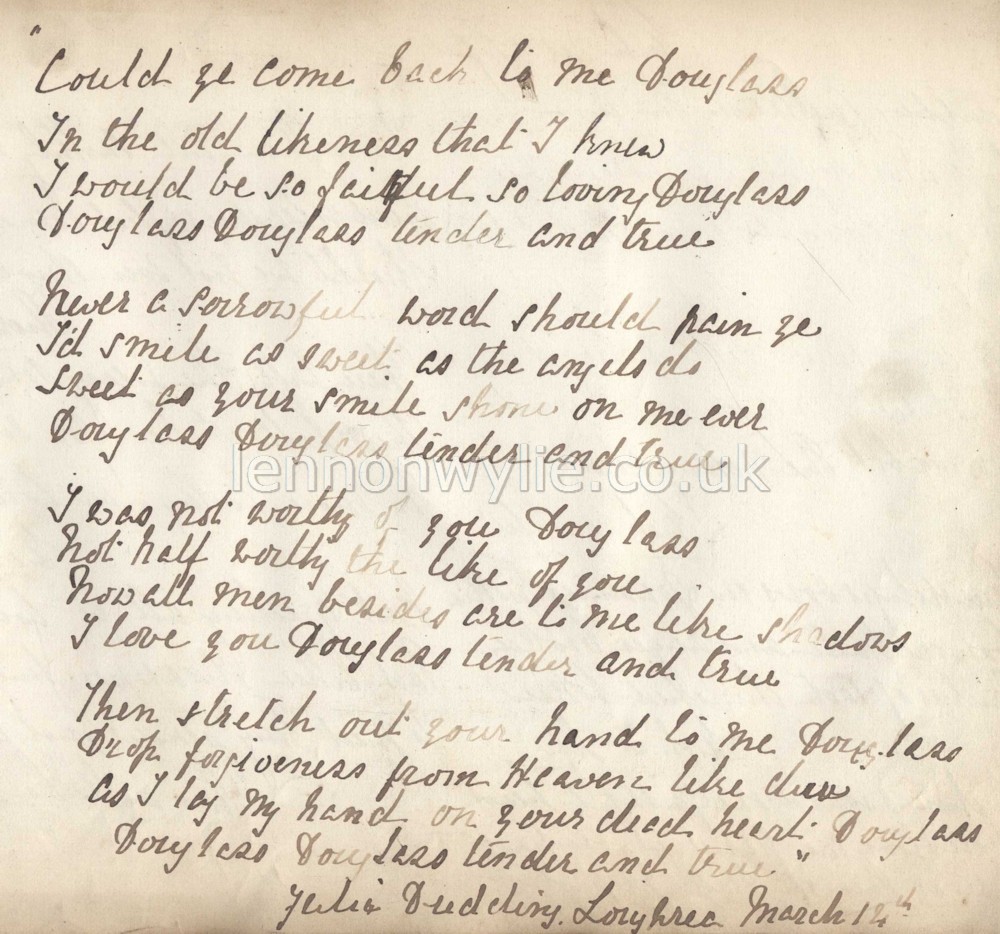 "Could ye come back to me Douglass
In the old likeness that I knew
I would be so faithful so loving Douglass
Douglass Douglass tender and true
Never a sorrowful word should pain ye
I'd smile as sweet as the angels do
Sweet as your smile shone on me ever
Douglass Douglass tender and true
lennonwylie.co.uk
I was not worthy of you Douglass
Not half worthy the like of you
Now all men besides are to me like shadows
I love you Douglass tender and true
Then stretch out your hand to me Douglass
Drop forgiveness from Heaven like dew
As I lay my hand on your dead heart Douglass
Douglass Douglass tender and true"
Julia Dudding. Loughrea March 12th